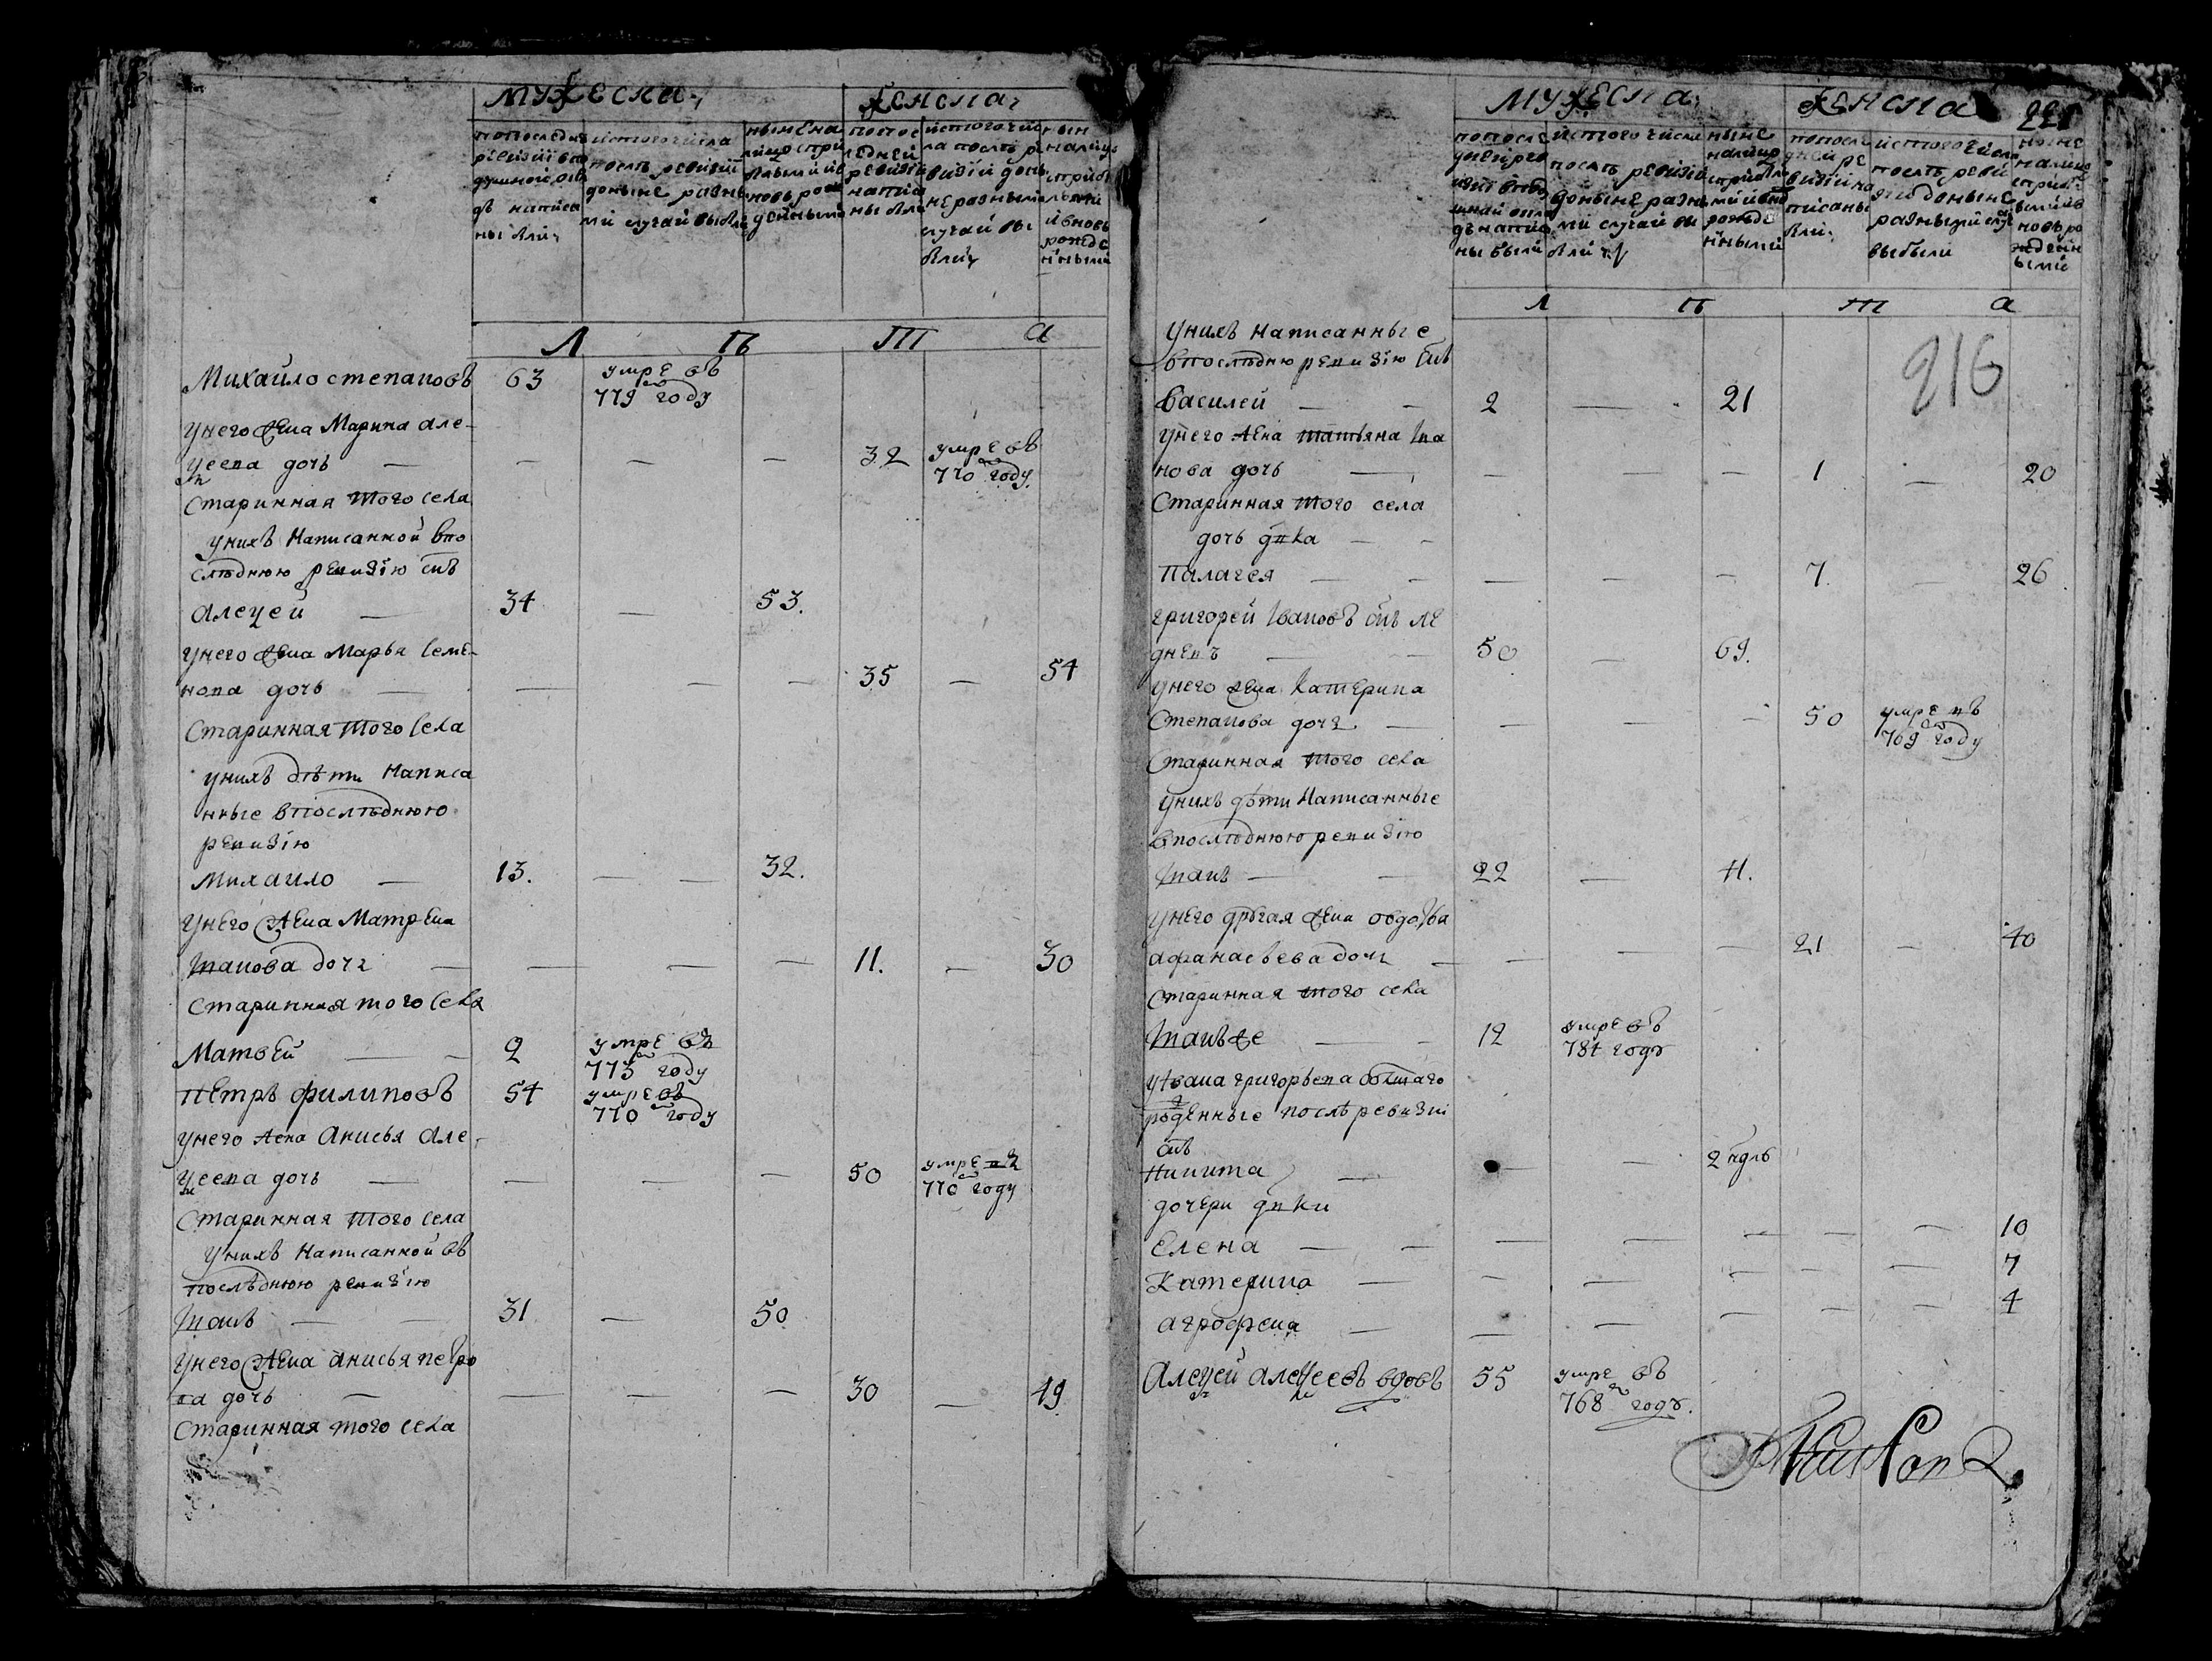 мужеска
женска
попоследней ревизии вподушной окладъ написаны были
истого числа послѣ ревизии доныне разными случаи выбыли
ныне налицо сприбылыми ивновь рожденными
попоследней ревизии написаны были
истого числа послѣ ревизии доныне разными случаи выбыли
ныне налицо сприбылыми ивновь рожденными
Л ѣ т а
Михайло степановъ 63 умре въ 779 году
унего жена Марина але-
ѯеева дочь — — — — 32 умре въ 770 году
Старинная того села
унихъ Написанной впо
слѣднюю ревизiю снъ
алеѯей — 34 — 53.
унего жена Марья семе-
нова дочь — — — — 35 — 54
Старинная того села
унихъ дѣти Написа
нные впослѣднюю
ревизiю
Михаило — 13. — — 32.
унего жена Матрена
Iванова дочь — — — — 11. — 30
Старинная того села
Матвей — — 2 умре въ 773 году
Петръ филиповъ 54 умре въ 770 году
унего жена Анисья Але-
ѯеева дочь — — — — 50 умре въ 770 году
Старинная того села
унихъ Написанной въ
послѣднюю ревизiю
Iванъ — — 31 — 50
унего жена анисья петро
ва дочь — — — — 30 — 49
Старинная того села
мужеска
женска
221
попоследней ревизии вподушной окладъ написаны были
истого числа послѣ ревизии доныне разными случаи выбыли
ныне налицо сприбылыми ивновь рожденными
попоследней ревизии написаны были
истого числа послѣ ревизии доныне разными случаи выбыли
ныне налицо сприбылыми ивновь рожденными
Л ѣ т а
216
унихъ написанные
впослѣднюю ревизiю снъ
Василей — — 2 — 21
унего жена татьяна Iва
нова дочь — — — — 1 — 20
Старинная того села
дочь двка — —
Палагея — — — — — 7. — 26
григорей Iвановъ снъ
— — 50 — 69.
унего жена Катерина
Степанова дочь — — — — 50 умре въ 769 году
Старинная того села
унихъ дѣти Написанные
впослѣднюю ревизiю
Iванъ — — 22 — 41.
унего другая жена овдотья
афанасьева дочь — — — — 21 — 40
Старинная того села
Iванъже — — 12 умре въ 781 годъ
уIвана григорьева болшаго
рожденные послѣ ревизии
снъ
Никита — — — 2 ндлъ
дочери двки
Елена — — — — — — — 10
Катерина — — — — — — 7
агрофена — — — — — — 4
Алеѯей алеѯеевъ вдовъ 55 умре въ 768 годъ.